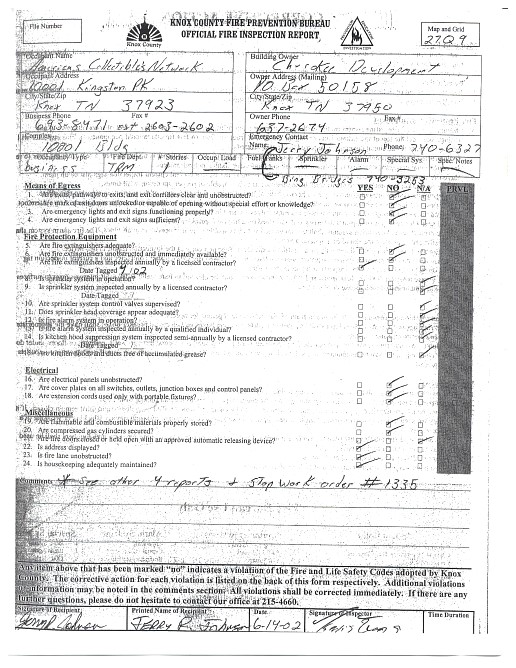 File Number
KNOX COUNTY FIRE PREVENTION BUREAU
OFFICIAL FIRE INSPECTION REPORT
Knox County
FIRE
INVESTIGATION
Map and Grid
27.09
Occupant Name
Americas Collectibles Network
Building Owner
Cherokee Development
Occupant Address
10001 Kingston PK
Owner Address (Mailing)
PO Box 50158
City/State/Zip
Knox TN 37923
City/State/Zip
Knox TN 37950
Business Phone Fax #
693-8471 ext 2603-2602
Owner Phone Fax #
637-2674
Complex
10001 Bldg
Emergency Contact
Name: Jerry Johnson Phone: 740-6327
Occupancy Type Fire Dept. # Stories Occup/Load Fuel Tanks Sprinkler Alarm Special Sys. Spec Notes
business 1
Bridges 740-3253
Means of Egress YES NO N/A
1. exit pathways to exits, and exit corridors clear and unobstructed?
2. exit doors unlocked or capable of opening without special effort or knowledge?
3. Are emergency lights and exit signs functioning properly?
4. Are emergency lights and exit signs sufficient?
Fire Protection Equipment
5. Are fire extinguishers adequate?
6. Are fire extinguishers unobstructed and immediately available?
7. Are fire extinguishers inspected annually by a licensed contractor?
Date Tagged 4/02
8. Is sprinkler system in operation?
9. Is sprinkler system inspected annually by a licensed contractor?
Date Tagged
10. Are sprinkler system control valves supervised?
11. Does sprinkler head coverage appear adequate?
12. Is fire alarm system in operation?
13. Is fire alarm system inspected annually by a qualified individual?
14. Is kitchen hood suppression system inspected semi-annually by a licensed contractor?
Date Tagged
15. Are kitchen hoods and ducts free of accumulated grease?
Electrical
16. Are electrical panels unobstructed?
17. Are cover plates on all switches, outlets, junction boxes and control panels?
18. Are extension cords used only with portable fixtures?
Miscellaneous
19. Are flammable and combustible materials properly stored?
20. Are compressed gas cylinders secured?
21. Are fire doors closed or held open with an approved automatic releasing device?
22. Is address displayed?
23. Is fire lane unobstructed?
24. Is housekeeping adequately maintained?
Comments * See other 4 reports & Stop work order # 1335
Any item above that has been marked "no" indicates a violation of the Fire and Life Safety Codes adopted by Knox
County. The corrective action for each violation is listed on the back of this form respectively. Additional violations
or information may be noted in the comments section. All violations shall be corrected immediately. If there are any
further questions, please do not hesitate to contact our office at 215-4660.
Signature of Recipient Printed Name of Recipient Date Signature of Inspector Time Duration
Jerry R. Johnson 6-14-02